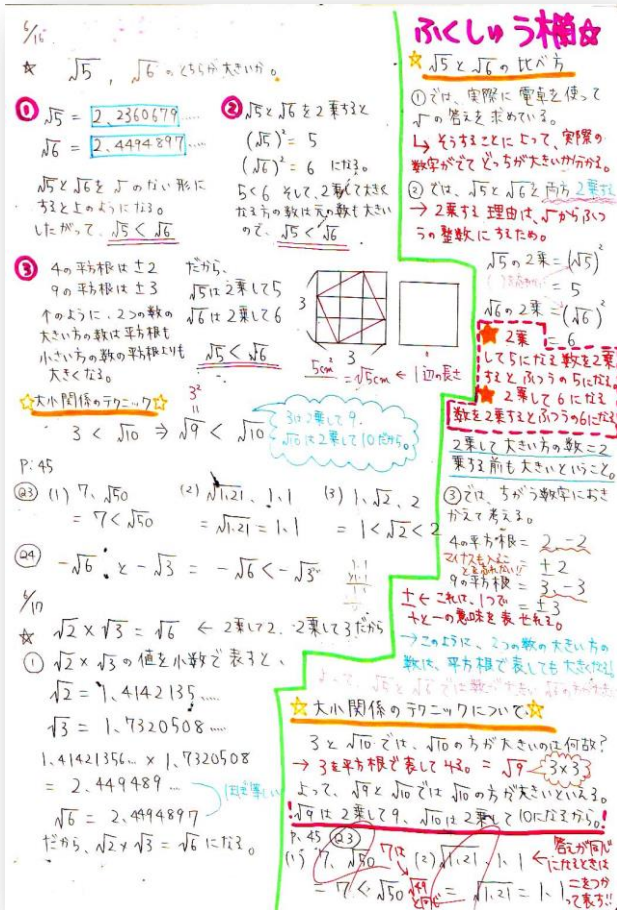 6/16
☆ √5, √6 のどちらが大きいか。
① √5 = 2.2360679……
√6 = 2.4494897……
√5と√6を√のない形に
すると上のようになる。
したがって、√5<√6
② √5と√6を2乗すると
(√5)² = 5
(√6)² = 6 になる。
5<6 そして、2乗して大きく
なる方の数は元の数も大きい
ので、√5<√6
③ 4の平方根は±2
9の平方根は±3
↑のように、2つの数の
大きい方の数は平方根も
小さい方の数の平方根よりも
大きくなる。
だから、
√5は2乗して5
√6は2乗して6
√5<√6
3
3
5cm²=√5cm ← 1辺の長さ
☆大小関係のテクニック☆
3²
"
3 < √10 ⇒ √9 < √10
3は2乗して9.
√10は2乗して10だから。
P.45
㉓ (1) 7、√50
= 7<√50
(2) √1.21、1.1
= √1.21 = 1.1
(3) 1、√2、2
= 1<√2<2
㉔ -√6 と -√3 = -√6<-√3
6/17
☆ √2×√3=√6 ← 2乗して2. 2乗して3だから
① √2×√3の値を小数で表すと、
√2 = 1.4142135……
√3 = 1.7320508……
1.41421356… × 1.7320508
= 2.449489…
√6 = 2.4494897
ほぼ等しい
だから、√2×√3=√6になる。
ふくしゅう欄☆
☆√5と√6の比べ方
①では、実際に電卓を使って
√の答えを求めている。
↳そうすることによって、実際の
数字がでてどっちが大きいか分かる。
②では、√5と√6と両方2乗する
→2乗する理由は、√からふつ
うの整数にするため。
√5の2乗=(√5)²
= 5
√6の2乗=(√6)²
= 6
★2乗
して5になる数を2乗
するとふつうの5になる。
★2乗して6になる
数を2乗するとふつうの6になる
2乗して大きい方の数=2
乗する前も大きいということ。
③では、ちがう数字におき
かえて考える。
4の平方根= 2、-2
±2
9の平方根= 3、-3
±3
±←これは、1つで
+と-の意味を表せれる。
→このように、2つの数の大きい方の
数は、平方根で表しても大きくなる
☆大小関係のテクニックについて☆
3と√10では、√10の方が大きいのは何故?
→3を平方根で表してみる。=√9 3×3
よって、√9と√10では√10の方が大きいといえる。
!√9は2乗して9、√10は2乗して10になるから。!
P.45 ㉓
(1) 7、√50
= 7<√50
7は
√49
と同じ
(2) √1.21、1.1
= √1.21 = 1.1
← 答えが同じ
になるときは
=をつか
って表す!!